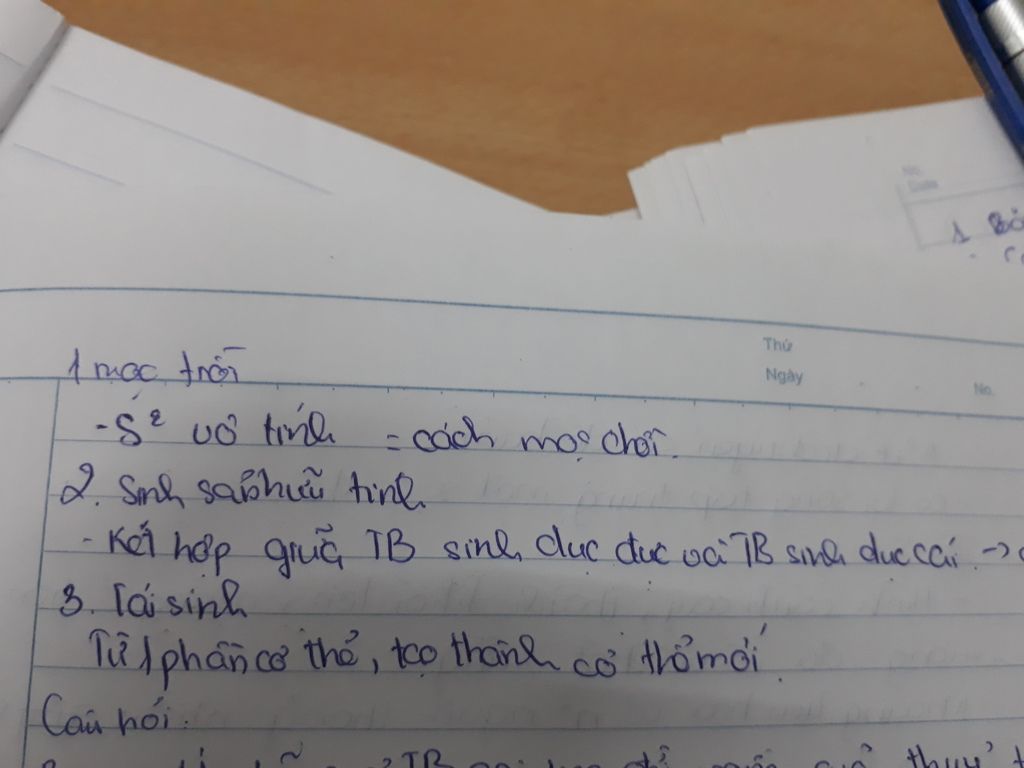 1 Bỏ
Thứ
Ngày
No.
1 mọc trồi
- S² vô tính = cách mọc chồi.
2. Sinh sản hữu tính
- Kết hợp giữa TB sinh dục đực và TB sinh dục cái →
3. Tái sinh
Từ 1 phần cơ thể, tạo thành cơ thể mới.
Câu hỏi:
TB